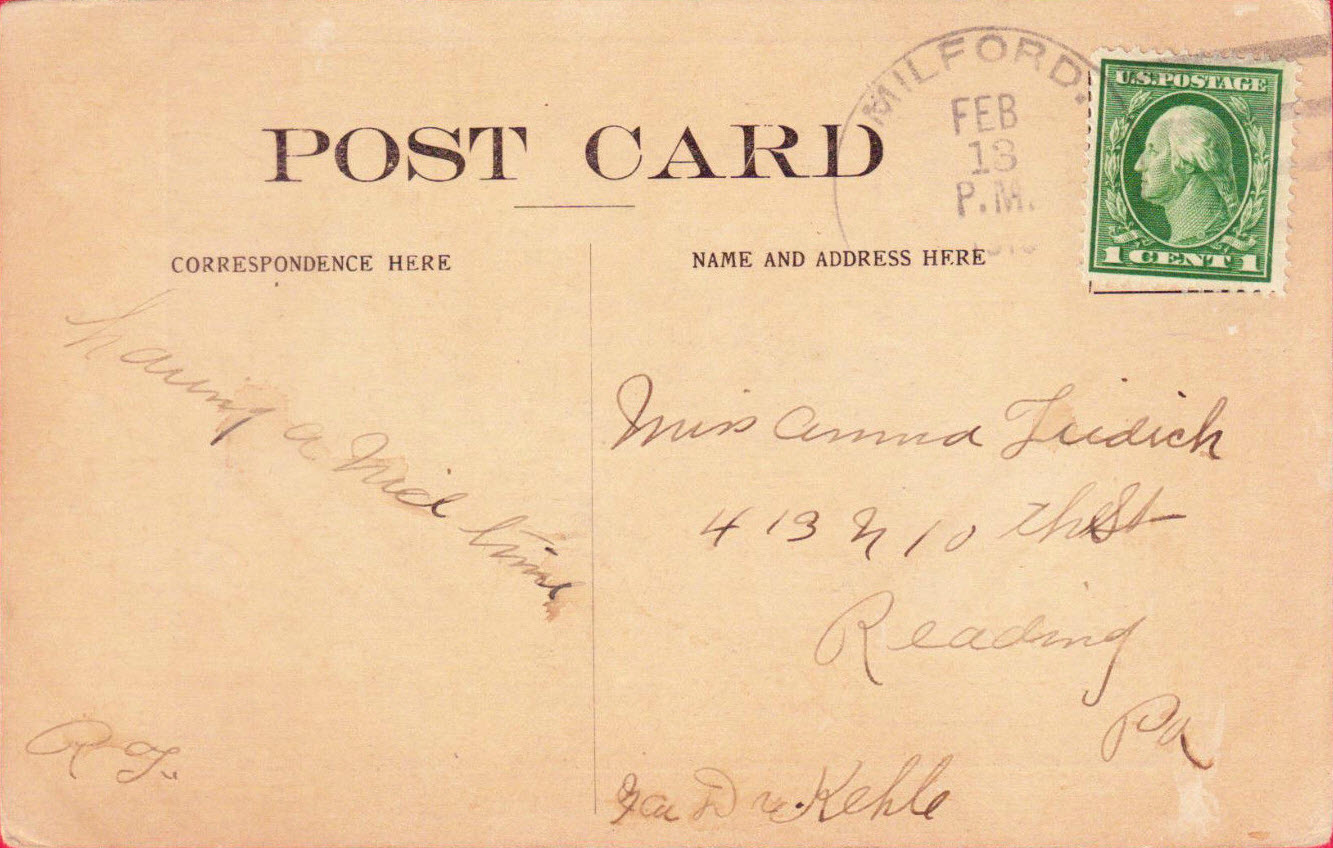 MILFORD.
FEB
13
P.M.
U.S.POSTAGE
1 CENT 1
POST CARD
CORRESPONDENCE HERE
NAME AND ADDRESS HERE
having a Nice time
R F.
Miss Anna
413 N 10 th St
Reading
Pa
Kehle